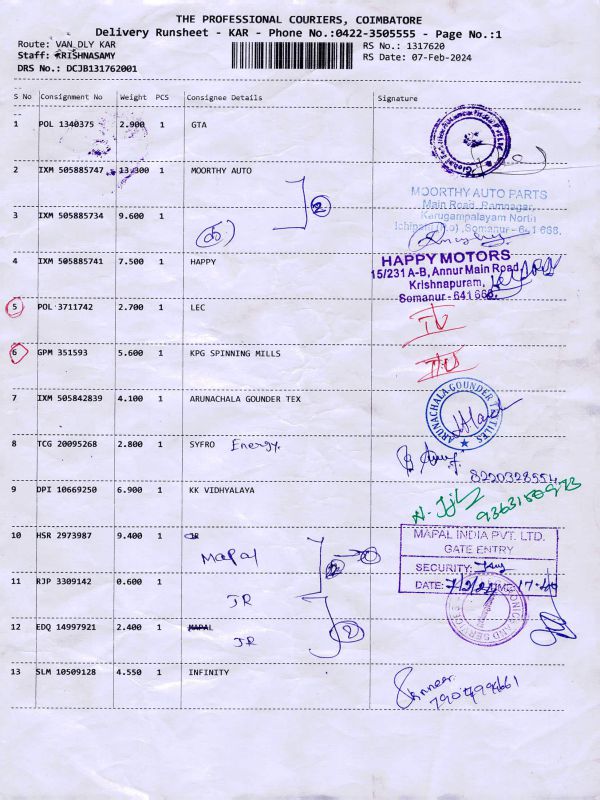 THE PROFESSIONAL COURIERS, COIMBATORE
Delivery Runsheet - KAR - Phone No.:0422-3505555 - Page No.:1
Route: VAN DLY KAR
RS No.: 1317620
Staff: KRISHNASAMY
RS Date: 07-Feb-2024
DRS No.: DCJB131762001
S No Consignment No Weight PCS Consignee Details Signature
1 POL 1340375 2.900 1 GTA
2 IXM 505885747 13.300 1 MOORTHY AUTO
2
MOORTHY AUTO PARTS
Main Road, Ramnagar,
3 IXM 505885734 9.600 1
Karugampalayam North
Ichipatti(P.o), Somanur - 641 668.
4 IXM 505885741 7.500 1 HAPPY
HAPPY MOTORS
15/231 A-B, Annur Main Road,
Krishnapuram,
Somanur - 641 668.
5 POL 3711742 2.700 1 LEC
6 GPM 351593 5.600 1 KPG SPINNING MILLS
7 IXM 505842839 4.100 1 ARUNACHALA GOUNDER TEX
ARUNACHALA GOUNDER TEXTILES
8 TCG 20095268 2.800 1 SYFRO Energy.
8220328554
9 DPI 10669250 6.900 1 KK VIDHYALAYA
10 HSR 2973987 9.400 1 JR
Mapal
MAPAL INDIA PVT. LTD.
GATE ENTRY
SECURITY:
DATE: 7/2/24 TIME: 17.40
11 RJP 3309142 0.600 1
JR
12 EDQ 14997921 2.400 1 MAPAL
JR
2
13 SLM 10509128 4.550 1 INFINITY